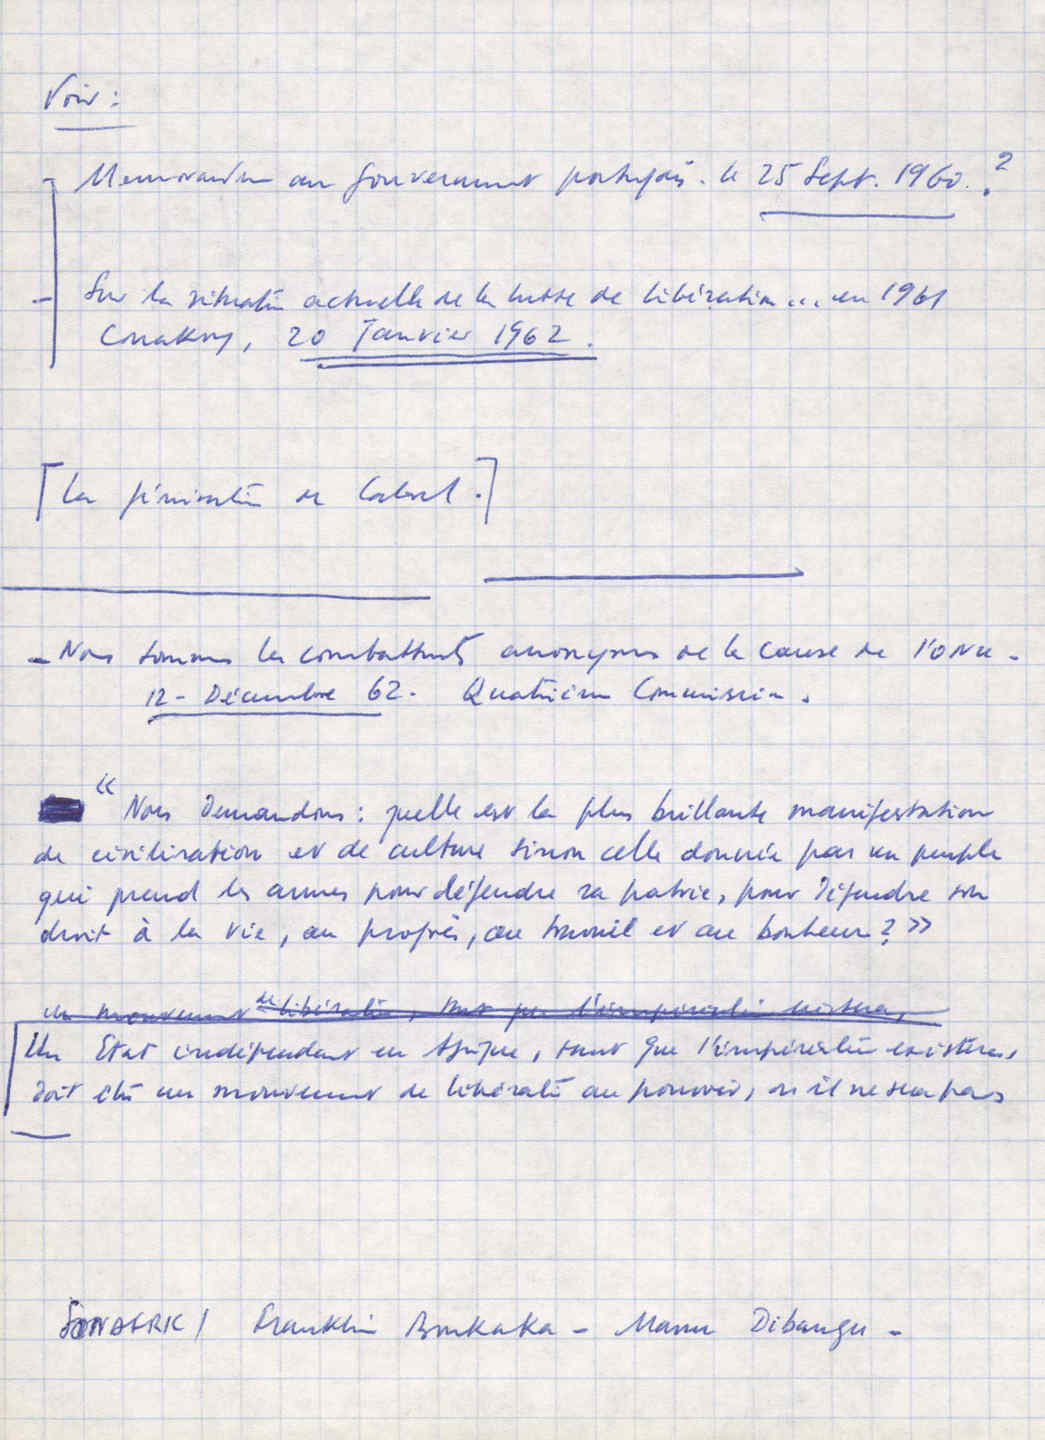 Voir :
- Memorandum au Gouvernement portugais. le 25 Sept. 1960. ?
- Sur la situation actuelle de la lutte de libération ... en 1961
Conakry, 20 Janvier 1962.
[La pénétration de Cabral.]
- Nous sommes les combattants anonymes de la cause de l'ONU -
12 - Décembre 62. Quatrième Commission.
" Nous demandons : quelle est la plus brillante manifestation
de civilisation et de culture sinon celle donnée par un peuple
qui prend les armes pour défendre sa patrie, pour défendre son
droit à la vie, au progrès, au travail et au bonheur ? »
un mouvement de libération, tant que l'impérialisme existera,
Un Etat indépendant en Afrique, tant que l'impérialisme existera,
doit être un mouvement de libération au pouvoir, ou il ne sera pas
SONAFRIC / Franklin Boukaka - Manu Dibangu -